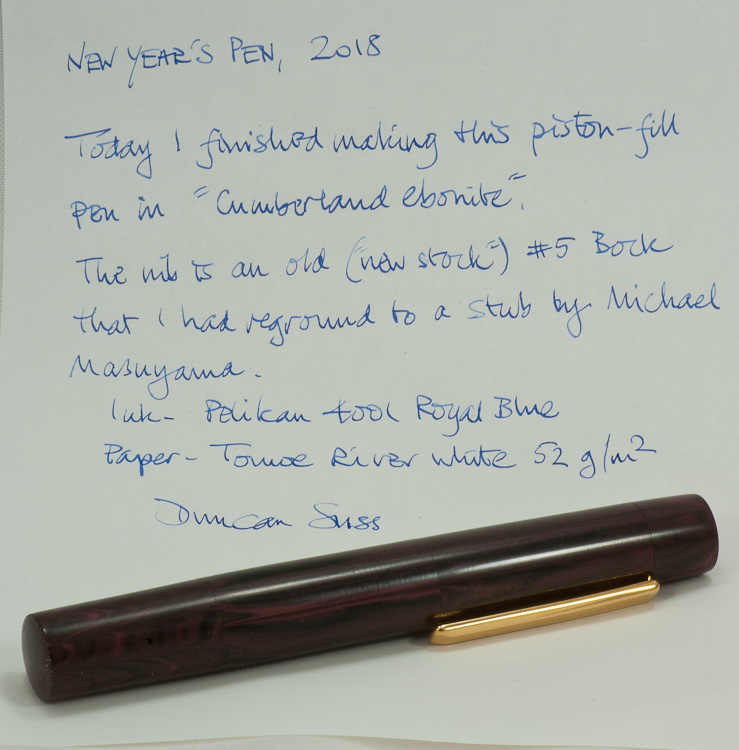 NEW YEAR'S PEN, 2018
Today I finished making this piston-fill
pen in "Cumberland ebonite".
The nib is an old ("new stock") #5 Bock
that I had reground to a stub by Michael
Masuyama.
Ink- Pelikan 4001 Royal Blue
Paper- Tomoe River white 52 g/m²
Duncan Suss